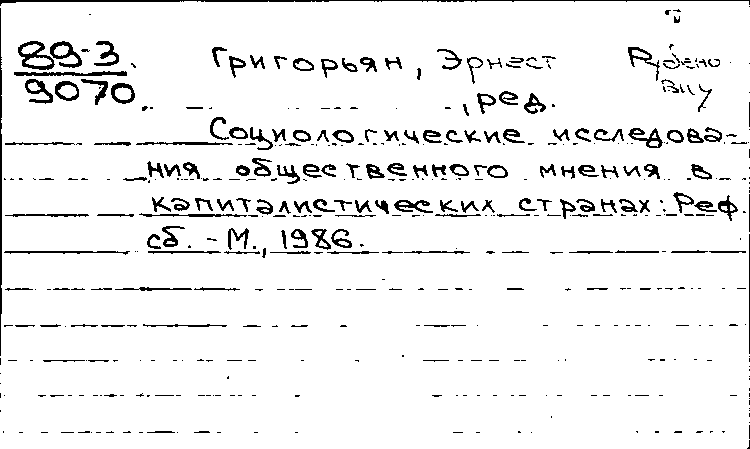 89-3 Григорьян, Эрнест Рубено
9070 вич
, ред.
Социологические исследова-
ния общественного мнения в
капиталистических странах: Реф.
сб. - М., 1986.